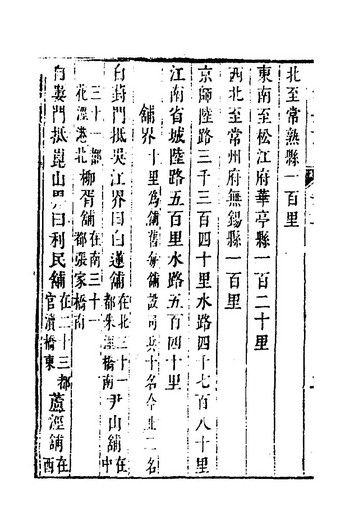 北至常熟縣一百里
東南至松江府華亭縣一百二十里
西北至常州府無錫縣一百里
京師陸路三千三百四十里水路四千七百八十里
江南省城陸路五百里水路五百四十里
舖界十里為舖舊每舖設司兵十名今止二名
自葑門抵吳江界曰白蓮舖在北三十一都朱涇橋南尹山舖在中
三十一都花涇港北柳胥舖在南三十一都張家橋南
自婁門抵崑山界曰利民舖在二十三都官瀆橋東蘆涇舖在西